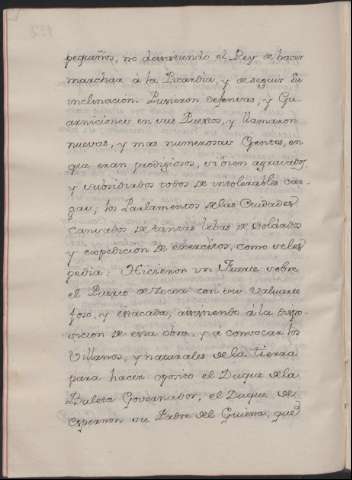 pequeños, no dexistiendo el Rey de hacer
marchar a la Picardia, y de seguir su
inclinacion. Pusieron defensas, y Gu
arniciones en sus Puertos, y llamaron
nuevas, y mas numerosas Gentes, en
que eran prodigiosos, vivian agravados
y subsidiados todos de intolerables car
gas; los Parlamentos de las Ciudades
cansados de tantas lebas de soldados
y expedicion de exercitos, como se les
pedia: Hicieron un Fuerte sobre
el Puerto de Socoa con su valuarte
foso, y estacada, asistiendo a la
sicion de esta obra, y a comvocar los
Villanos, y naturales de la tierra
para hacer oposito el Duque de la
Baleta Governador, el Duque de
Espernon su Padre del Guiena, que